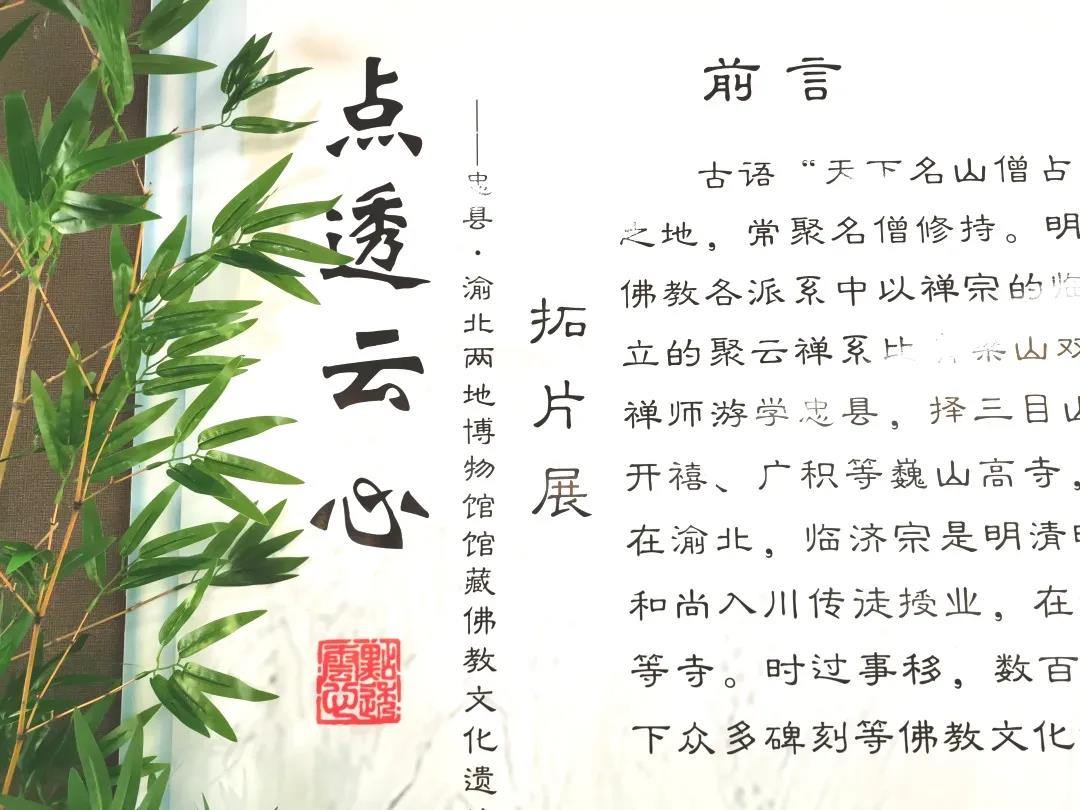 点透云心
——忠县·渝北两地博物馆馆藏佛教文化遗
拓片展
點透雲心
前言
古语“天下名山僧占
之地，常聚名僧修持。明
佛教各派系中以禅宗的临
立的聚云禅系比 梁山双
禅师游学忠县，择三目山
开禧、广积等巍山高寺，
在渝北，临济宗是明清时
和尚入川传徒授业，在
等寺。时过事移，数百
下众多碑刻等佛教文化